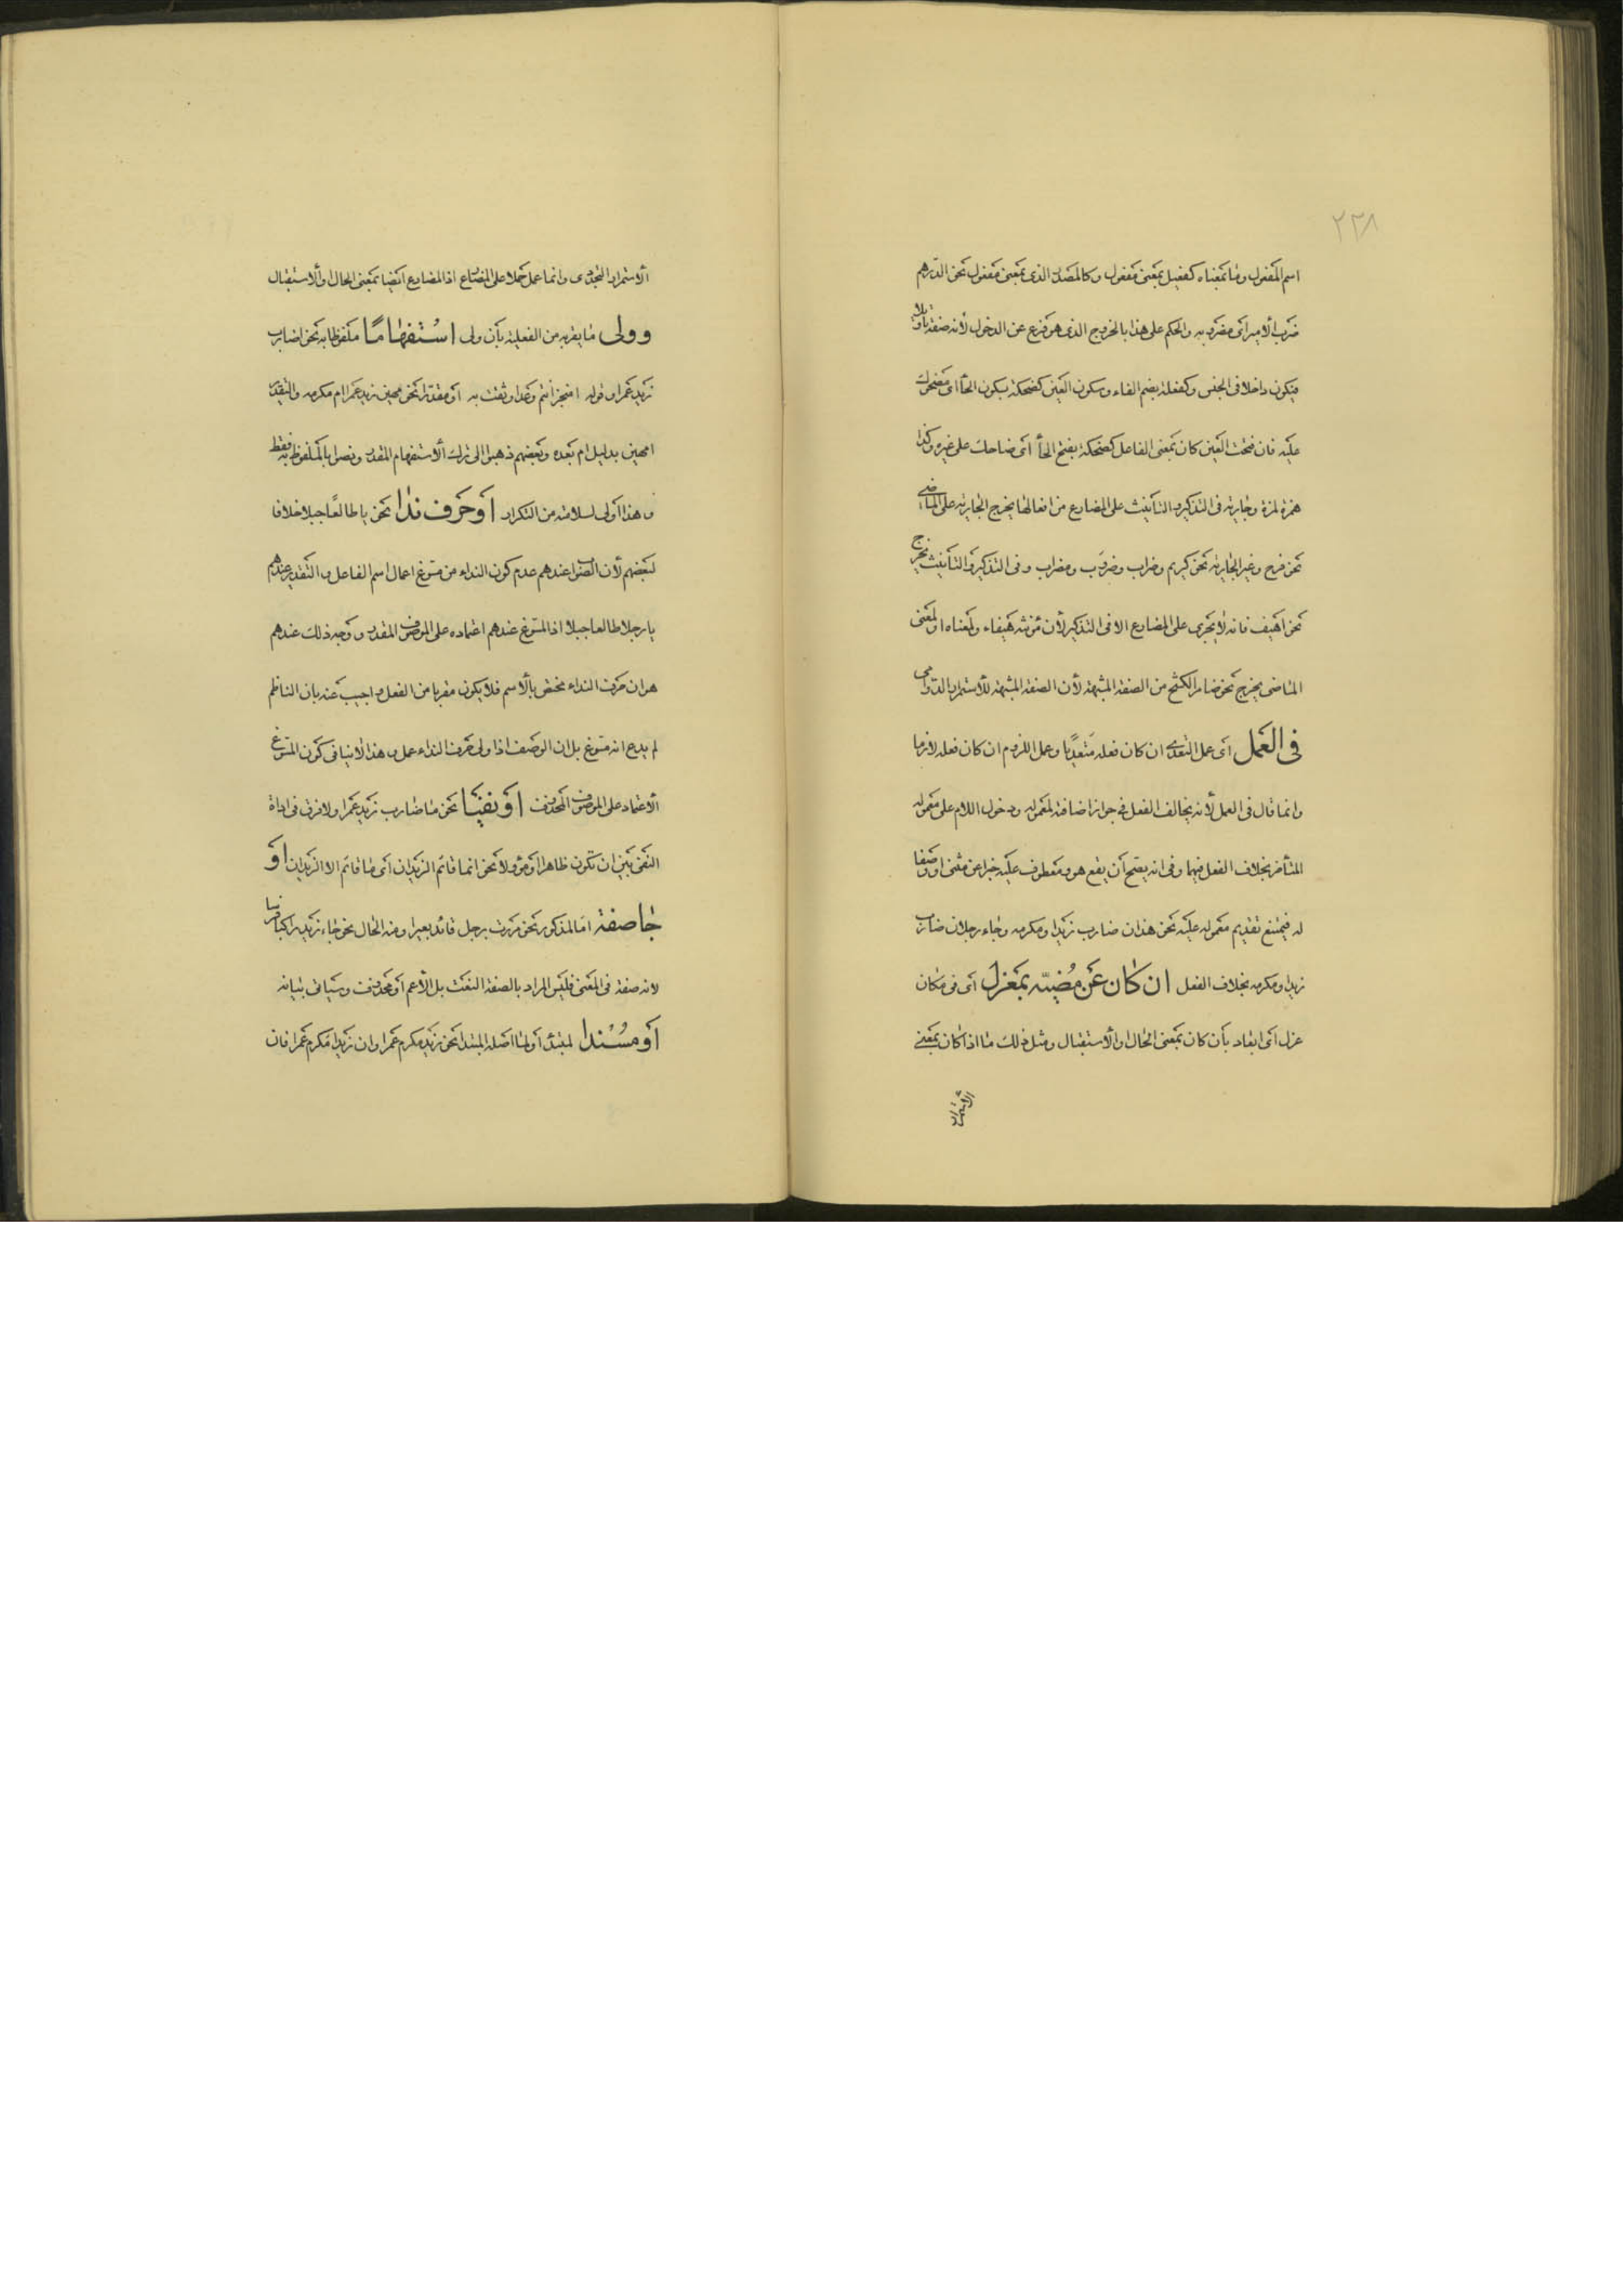 ٢٣٨
اسم المفعول وما بمعناه كفعيل بمعنى مفعول وكالمصدر الذى بمعنى مفعول نحو الدرهم
ضرب الامير اى مضروبه والحكم على هذا بالخروج الذى هو فرع عن الدخول لأنه صفة تأويلا
فيكون داخلا فى الجنس وكفعلة بضم الفاء وسكون العين كضحكة بسكون الحاء اى مضحوك
عليه فان فتحت العين كان بمعنى الفاعل كضحكة بفتح الحاء اى ضاحك على غيره وكذا
همزة لمزة وجارية فى التذكير والتأنيث على المضارع من افعالها يخرج الجارية على الماضى
نحو فرح وغير الجارية نحو كريم وضراب وضروب ومضراب وفى التذكير والتأنيث يخرج
نحو اهيف فانه لا يجرى على المضارع الا فى التذكير لأن مؤنثه هيفاء ولمعناه او لمعنى
الماضى يخرج نحو ضامر الكشح من الصفة المشبهة لأن الصفة المشبهة للأستمرار الدوامى
فى العمل اى عمل التعدى ان كان فعله متعديا وعمل اللزوم ان كان فعله لازما
وانما قال فى العمل لأنه يخالف الفعل فى جواز اضافته لمعموله ودخول اللام على معموله
المتأخر بخلاف الفعل فيهما وفى انه يصح أن يقع هو ومعطوف عليه خبرا عن مثنى او وصفا
له فيمتنع تقديم معموله عليه نحو هذان ضارب زيدا ومكرمه وجاء رجلان ضارب
زيدا ومكرمه بخلاف الفعل ان كان عن مُضيّه بمعزل اى فى مكان
عزل اى ابعاد بأن كان بمعنى الحال او الأستقبال ومثل ذلك ما اذا كان بمعنى
الاستمرار
الأستمرار التجددى وانما عمل حملا على المضارع اذ المضارع ايضا بمعنى الحال او الاستقبال
وولى ما يقربه من الفعلية بأن ولى استفهاما ملفوظا به نحو اضارب
زيد عمرا وقوله امنجز انتم وعدا وثقت به او مقدرا نحو مهين زيد عمرا ام مكرمه والتقدير
امهين بدليل ام بعده وبعضهم ذهبوا الى ترك الأستفهام المقدر ونصوا بالملفوظ به فقط
وهذا اولى لسلامته من التكرار او حرف ندا نحو يا طالعا جبلا خلافا
لبعضهم لأن الصواب عندهم عدم كون النداء من مسوغ اعمال اسم الفاعل والتقدير عندهم
يا رجلا طالعا جبلا اذ المسوغ عندهم اعتماده على الموصوف المقدر ووجه ذلك عندهم
هو ان حرف النداء مختص بالأسم فلا يكون مقربا من الفعل واجيب عنه بان الناظم
لم يدع انه مسوغ بل ان الوصف اذا ولى حرف النداء عمل وهذا لا ينافى كون المسوغ
الأعتماد على الموصوف المحذوف او نفيا نحو ما ضارب زيد عمرا ولا فرق فى اداة
النفى بين ان تكون ظاهرا او مؤولا نحو انما قائم الزيدان اى ما قائم الا الزيدان او
جا صفة اما لمذكور نحو مررت برجل قائد بعيرا ومنه الحال نحو جاء زيد راكبا فرسا
لانه صفة فى المعنى فليس المراد بالصفة النعت بل الأعم او محذوف وسيأتى بيانه
او مُسْندا لمبتدأ او لما اصله المبتدا نحو زيد مكرم عمرا وان زيدا مكرم عمرا فان